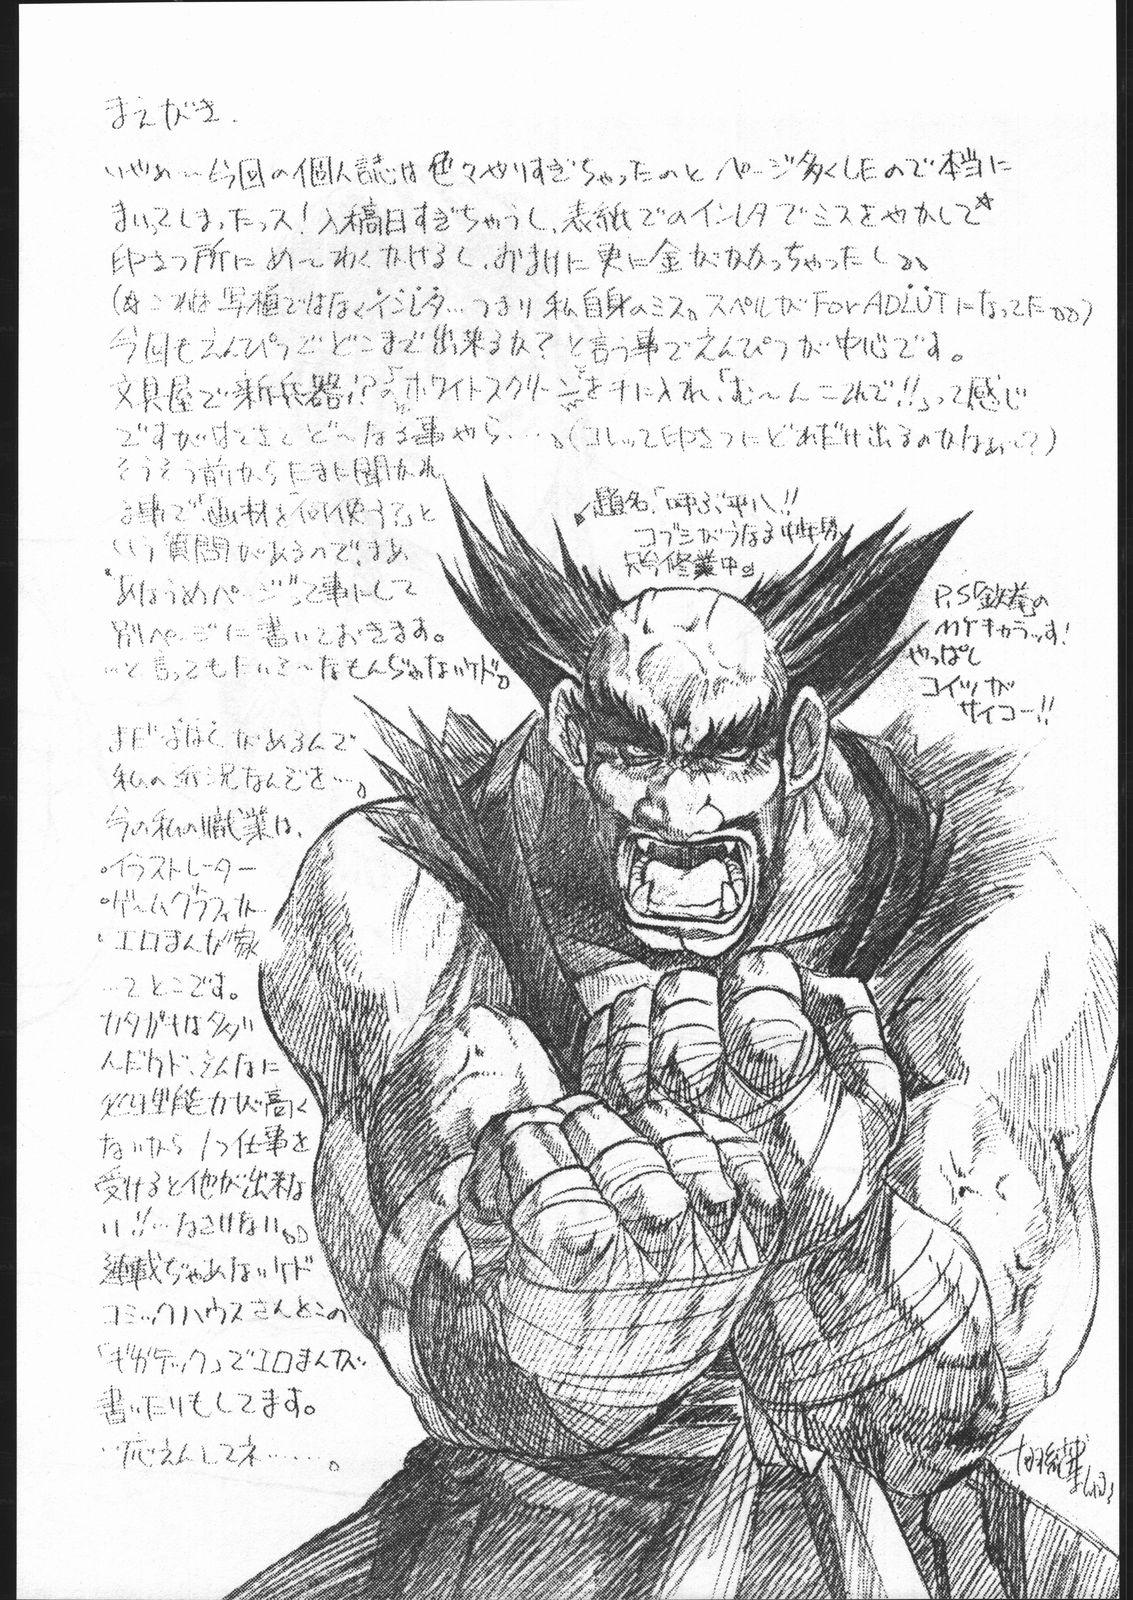 まえがき.
いやぁ…今回の個人誌は色々やりすぎちゃったのとページ多くしたので本当に
まいってしまったっス!入稿日すぎちゃうし、表紙でのインレタでミスをやかして☆
印さつ所にめ〜わくかけるし、おまけに更に金がかかっちゃったし。
(☆これは写植ではなくインレタ…つまり私自身のミス。スペルがFor ADLUTになってた。)
今回もえんぴつでどこまで出来るか?と言う事でえんぴつが中心です。
文具屋で新兵器!?の「ホワイトスクリーン」を手に入れ、「む〜んこれで!!」って感じ
ですがはてさてど〜なる事やら…。(コレって印さつにどれだけ出るのかなぁ〜?)
そうそう前からたまに聞かれ
る事で「画材を何使う?」と
いう質問があるので、まぁ
"あなうめページ"って事にして
別ページに書いておきます。
…と言ってもたいそ〜なもんぢゃないケド。
まだよはくがあるんで
私の近況なんでも…。
今の私の職業は、
・イラストレーター
・ゲームグラフィッカー
・エロまんが家
…てとこです。
カタガキはタブい
んだケド、そんなに
処理能力が高く
ないから1つ仕事を
受けると他が出来な
い!!…なさけない。
連載ぢゃあないケド
コミックハウスさんとこの
「ギガテック」でエロまんが
書いたりもしてます。
…応えんしてネ……。
題名、「呼ぶ平八!!
コブシがうなる
只今修業中」
P,S「鉄拳」の
MYキャラっす!
やっぱし
コイツが
サイコー!!